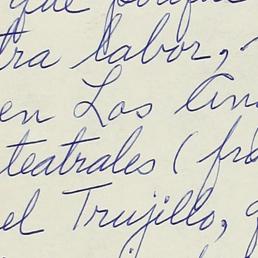 que porque
tra labor,
en Los
teatrales (
el Trujillo,